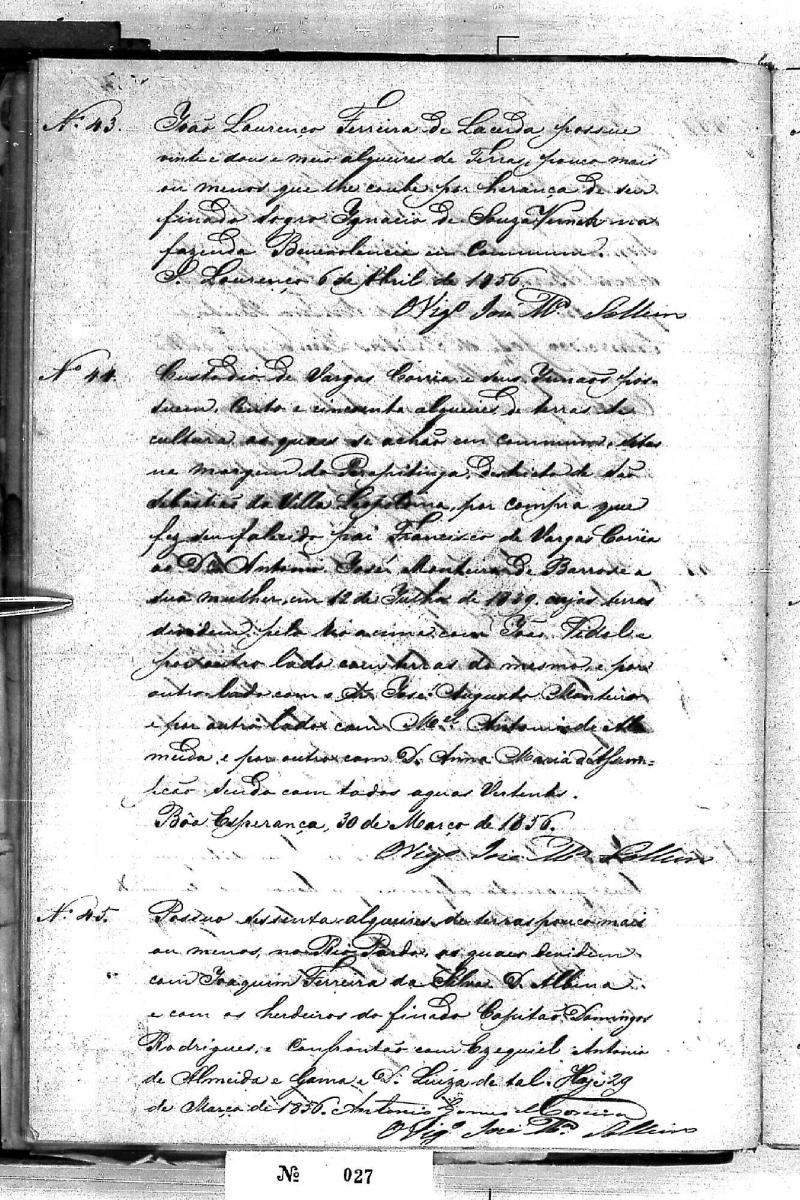 Nº 43. João Lourenço Ferreira de Lacerda possue
vinte e dous e meio alqueires de Terra, pouco mais
ou menos que lhe coube por herança de seu
finado sogro Ignacio de Souza na
fazenda Benevolencia em Commum.
S. Lourenço 6 de Abril de 1856
O Vigº José Mª
Nº 44. Custodio de Vargas Corrêa e seus Irmaõs pos-
suem, Cento e cincoenta alqueires de terras de
cultura as quaes se achão em commum, sitas
na margem do Perapitinga, destricto de são
Sebastião da Villa Leopoldina, por compra que
fez seu falecido pai Francisco de Vargas Corrêa
ao Dr. Antonio José Monteiro de Barros e a
sua mulher, em 12 de Julho de 1839. cujas terras
dividem pelo rio acima com João Vidal e
por outro lado com terras do mesmo, e por
outro lado com o Dr José Augusto Monteiro
e por outro lado com Mel. Antonio de Al-
meida, e por outro com D. Anna Maria d'Assum-
pção sendo com todos aguas Vertentes.
Bôa Esperança, 30 de Março de 1856.
O Vigº José Mª
Nº 45. Possuo sessenta alqueires de terras pouco mais
ou menos, no Rio Pardo, as quaes dividem
com Joaquim Ferreira da Silva D. Albina
e com os herdeiros do finado Capitão Domingos
Rodrigues, e Confrontão com Ezequiel Antonio
de Almeida e Gama e D. Luiza de tal. Hoje 29
de Março de 1856. Antonio Gomes Moreira
O Vigº José Mª
Nº 027